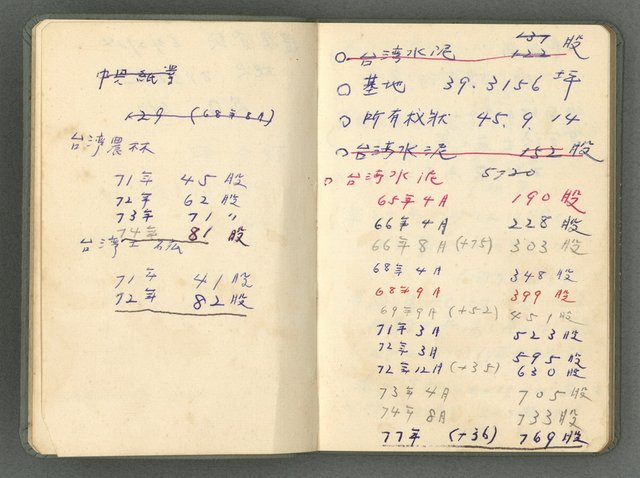 中興紙業
129 (68年8月)
台湾農林
71年 45股
72年 62股
73年 71〃
74年 81股
台湾工
71年 41股
72年 82股
137
○台湾水泥 122股
○基地 39.3156坪
○所有权狀 45.9.14
○台湾水泥 152股
○台湾水泥 5720
65年4月 190股
66年4月 228股
66年8月(+75) 303股
68年4月 348股
68年9月 399股
69年9月(+52) 451股
71年3月 523股
72年3月 595股
72年12月(+35) 630股
73年4月 705股
74年8月 733股
77年 (+36) 769股